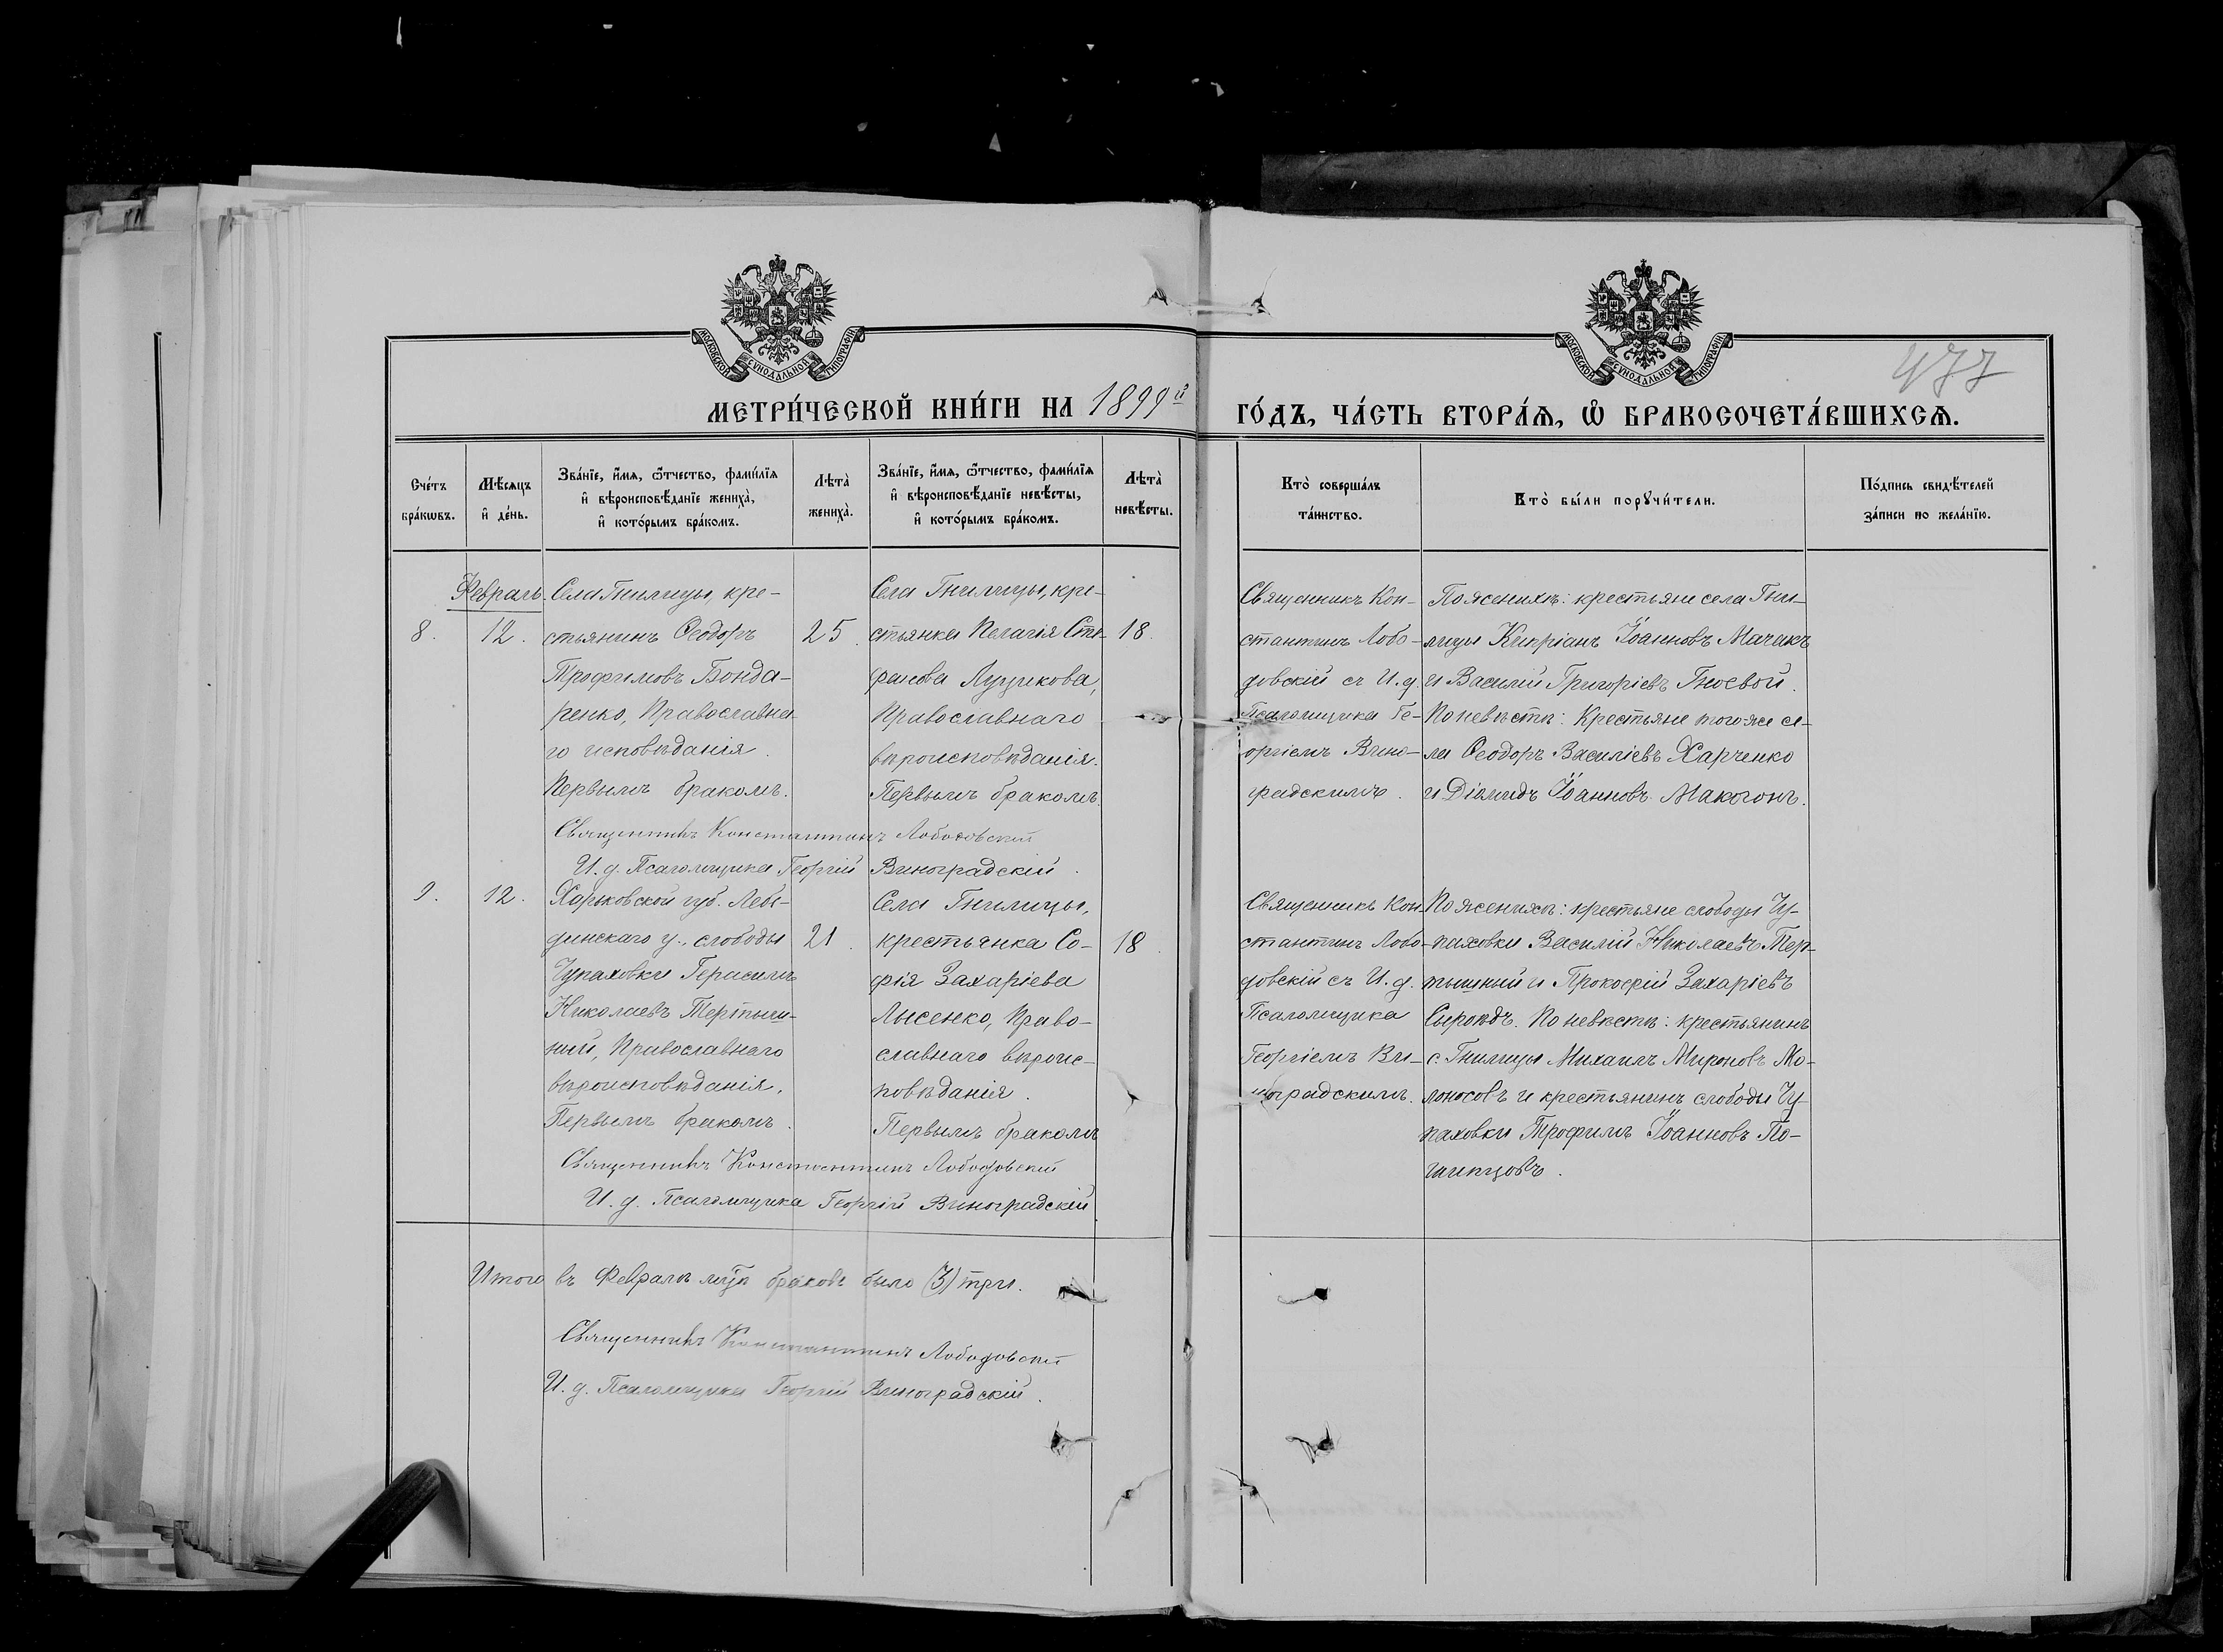 МОСКОВСКОЙ СУНОДАЛЬНОЙ ТИПОГРАФІИ
МОСКОВСКОЙ СУНОДАЛЬНОЙ ТИПОГРАФІИ
477
МЕТРИ́ЧЕСКОЙ КНИ́ГИ НА 1899й
ГО́ДЪ, ЧА́СТЬ ВТОРА́Ѧ, Ѡ҆ БРАКОСОЧЕТА́ВШИХСѦ.
Сче́тъ бра́кѡвъ.
Мѣ́сѧцъ и҆ де́нь.
Зва́нїе, и҆́мѧ, ѻ҆́тчество, фами́лїѧ
и҆ вѣроисповѣ́данїе жениха̀,
и҆ кото́рымъ бра́комъ.
Лѣта̀ жениха̀.
Зва́нїе, и҆́мѧ, ѻ҆́тчество, фами́лїѧ
и҆ вѣроисповѣ́данїе невѣ́сты,
и҆ кото́рымъ бра́комъ.
Лѣта̀ невѣ́сты.
Кто̀ соверша́лъ
та́инство.
Кто̀ бы́ли порꙋчи́тели.
По́дпись свидѣ́телей
за́писи по жела́нїю.
Февраль.
8.
12.
Села Гнилицы, кре-
стьянинъ Ѳеодоръ
Трофимовъ Бонда-
ренко, Православна-
го исповѣданія.
Первымъ бракомъ.
25.
Села Гнилицы, кре-
стьянка Пелагія Сте-
фанова Луцикова,
Православнаго
вѣроисповѣданія.
Первымъ бракомъ.
18.
Священникъ Кон-
стантинъ Лобо-
довскій съ И. д.
Псаломщика Ге-
оргіемъ Вино-
градскимъ.
По женихѣ: крестьяне села Гни-
лицы Кипріанъ Іоанновъ Мачакъ
и Василій Григоріевъ Гноевой.
По невѣстѣ: Крестьяне того же се-
ла Ѳеодоръ Василіевъ Харченко
и Діомидъ Іоанновъ Макогонъ.
Священникъ Константинъ Лободовскій
И. д. Псаломщика Георгій Виноградскій.
9.
12.
Харьковской губ. Лебе-
динскаго у., слободы
Чупаховки Герасимъ
Николаевъ Тертыш-
ный, Православнаго
вѣроисповѣданія.
Первымъ бракомъ.
21.
Села Гнилицы,
крестьянка Со-
фія Захаріева
Лысенко, Право-
славнаго вѣроис-
повѣданія.
Первымъ бракомъ
18.
Священникъ Кон-
стантинъ Лобо-
довскій съ И. д.
Псаломщика
Георгіемъ Ви-
ноградскимъ.
По женихѣ: крестьяне слободы Чу-
паховки Василій Николаевъ Тер-
тышный и Прокофій Захаріевъ
Сыроѣдъ. По невѣстѣ: крестьянинъ
с. Гнилицы Михаилъ Мироновъ Мо-
лоносовъ и крестьянинъ слободы Чу-
паховки Трофимъ Іоанновъ По-
Священникъ Константинъ Лободовскій
И. д. Псаломщика Георгій Виноградскій
Итого въ Февралѣ мцѣ браковъ было (3) три.
Священникъ Константинъ Лободовскій
И. д. Псаломщика Георгій Виноградскій.